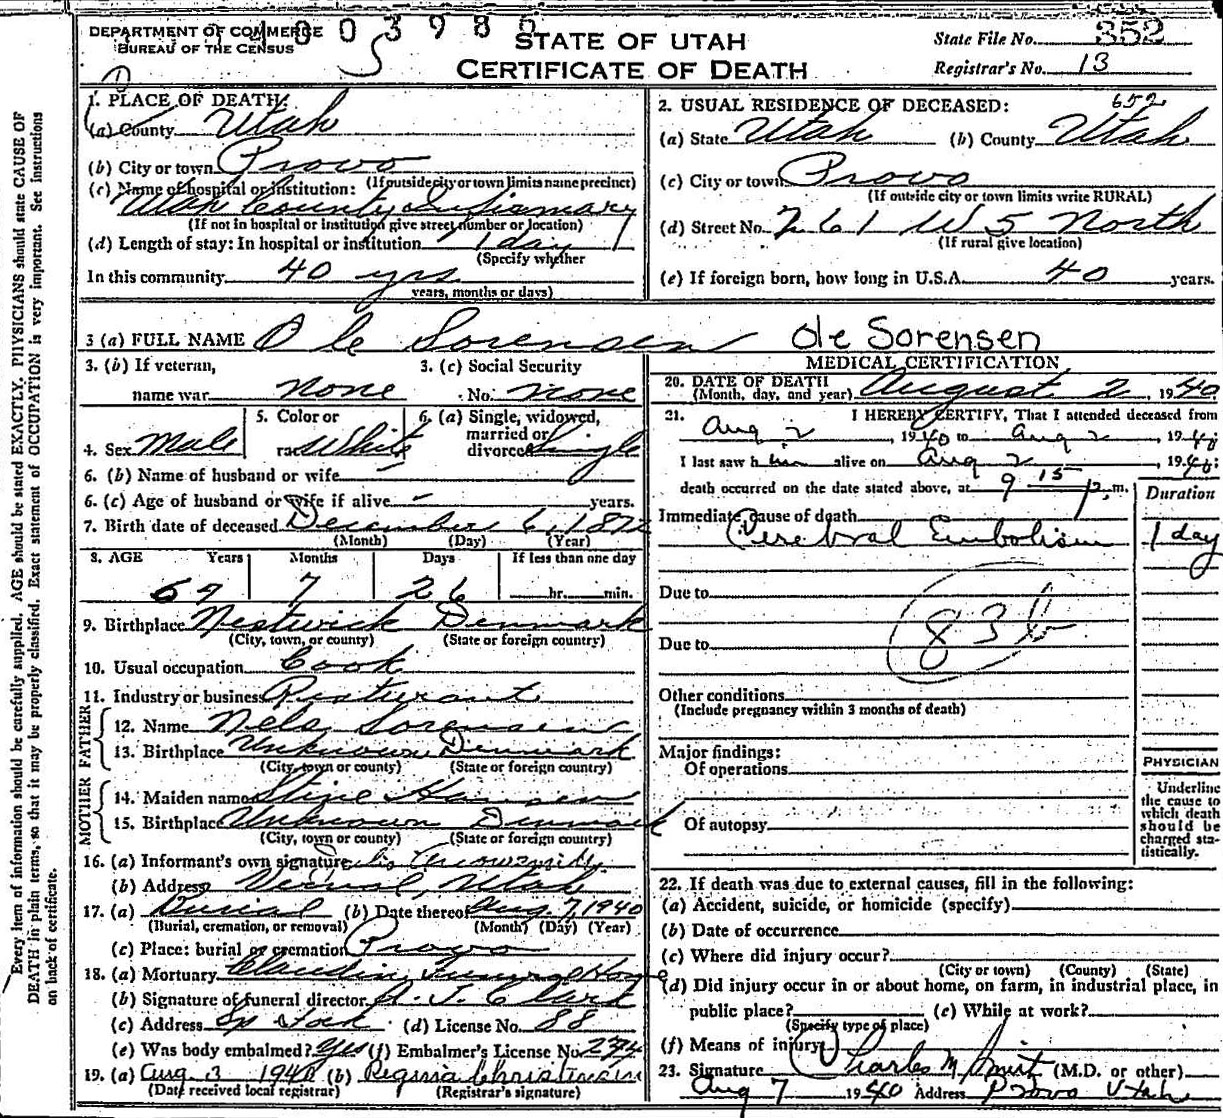 DEPARTMENT OF COMMERCE
BUREAU OF THE CENSUS
003986
STATE OF UTAH
CERTIFICATE OF DEATH
State File No. 352
Registrar's No. 13
Every item of information should be carefully supplied. AGE should be stated EXACTLY. PHYSICIANS should state CAUSE OF
DEATH in plain terms, so that it may be properly classified. Exact statement of OCCUPATION is very important. See instructions
on back of certificate.
1. PLACE OF DEATH:
(a) County Utah
(b) City or town Provo
(If outside city or town limits name precinct)
(c) Name of hospital or institution:
Utah County Infirmary
(If not in hospital or institution give street number or location)
(d) Length of stay: In hospital or institution 1 day
(Specify whether
In this community 40 yrs
years, months or days)
2. USUAL RESIDENCE OF DECEASED: 652
(a) State Utah (b) County Utah
(c) City or town Provo
(If outside city or town limits write RURAL)
(d) Street No. 261 W 5 North
(If rural give location)
(e) If foreign born, how long in U.S.A. 40 years.
3 (a) FULL NAME Ole Sorensen Ole Sorensen
3. (b) If veteran, name war none
3. (c) Social Security No. none
4. Sex Male
5. Color or race White
6. (a) Single, widowed, married or divorced Single
6. (b) Name of husband or wife –
6. (c) Age of husband or wife if alive – years.
7. Birth date of deceased December 6, 1872
(Month) (Day) (Year)
8. AGE Years Months Days If less than one day
67 7 26 hr. min.
9. Birthplace Nestwick Denmark
(City, town, or county) (State or foreign country)
10. Usual occupation Cook
11. Industry or business Resturant
FATHER
12. Name Nels Sorensen
13. Birthplace Unknown Denmark
(City, town or county) (State or foreign country)
MOTHER
14. Maiden name Stine Hansen
15. Birthplace Unknown Denmark
(City, town or county) (State or foreign country)
16. (a) Informant's own signature
(b) Address Vernal, Utah
17. (a) Burial (b) Date thereof Aug. 7, 1940
(Burial, cremation, or removal) (Month) (Day) (Year)
(c) Place: burial or cremation Provo
18. (a) Mortuary Claudin Funeral Home
(b) Signature of funeral director A. J. Clark
(c) Address (d) License No. 88
(e) Was body embalmed? Yes (f) Embalmer's License No. 274
19. (a) Aug 3 1940 (b) Regina Christensen
(Date received local registrar) (Registrar's signature)
MEDICAL CERTIFICATION
20. DATE OF DEATH
(Month, day, and year) August 2, 1940
21. I HEREBY CERTIFY, That I attended deceased from
Aug 2, 1940 to Aug 2, 1940
I last saw him alive on Aug 2, 1940;
death occurred on the date stated above, at 9 15 p. m.
Duration
Immediate cause of death
Cerebral Embolism 1 day
Due to
83b
Due to
Other conditions
(Include pregnancy within 3 months of death)
Major findings:
Of operations
Of autopsy
PHYSICIAN
Underline
the cause to
which death
should be
charged sta-
tistically.
22. If death was due to external causes, fill in the following:
(a) Accident, suicide, or homicide (specify)
(b) Date of occurrence
(c) Where did injury occur?
(City or town) (County) (State)
(d) Did injury occur in or about home, on farm, in industrial place, in
public place? (e) While at work?
(Specify type of place)
(f) Means of injury
23. Signature Charles M Smith (M.D. or other)
Aug 7 1940 Address Provo Utah